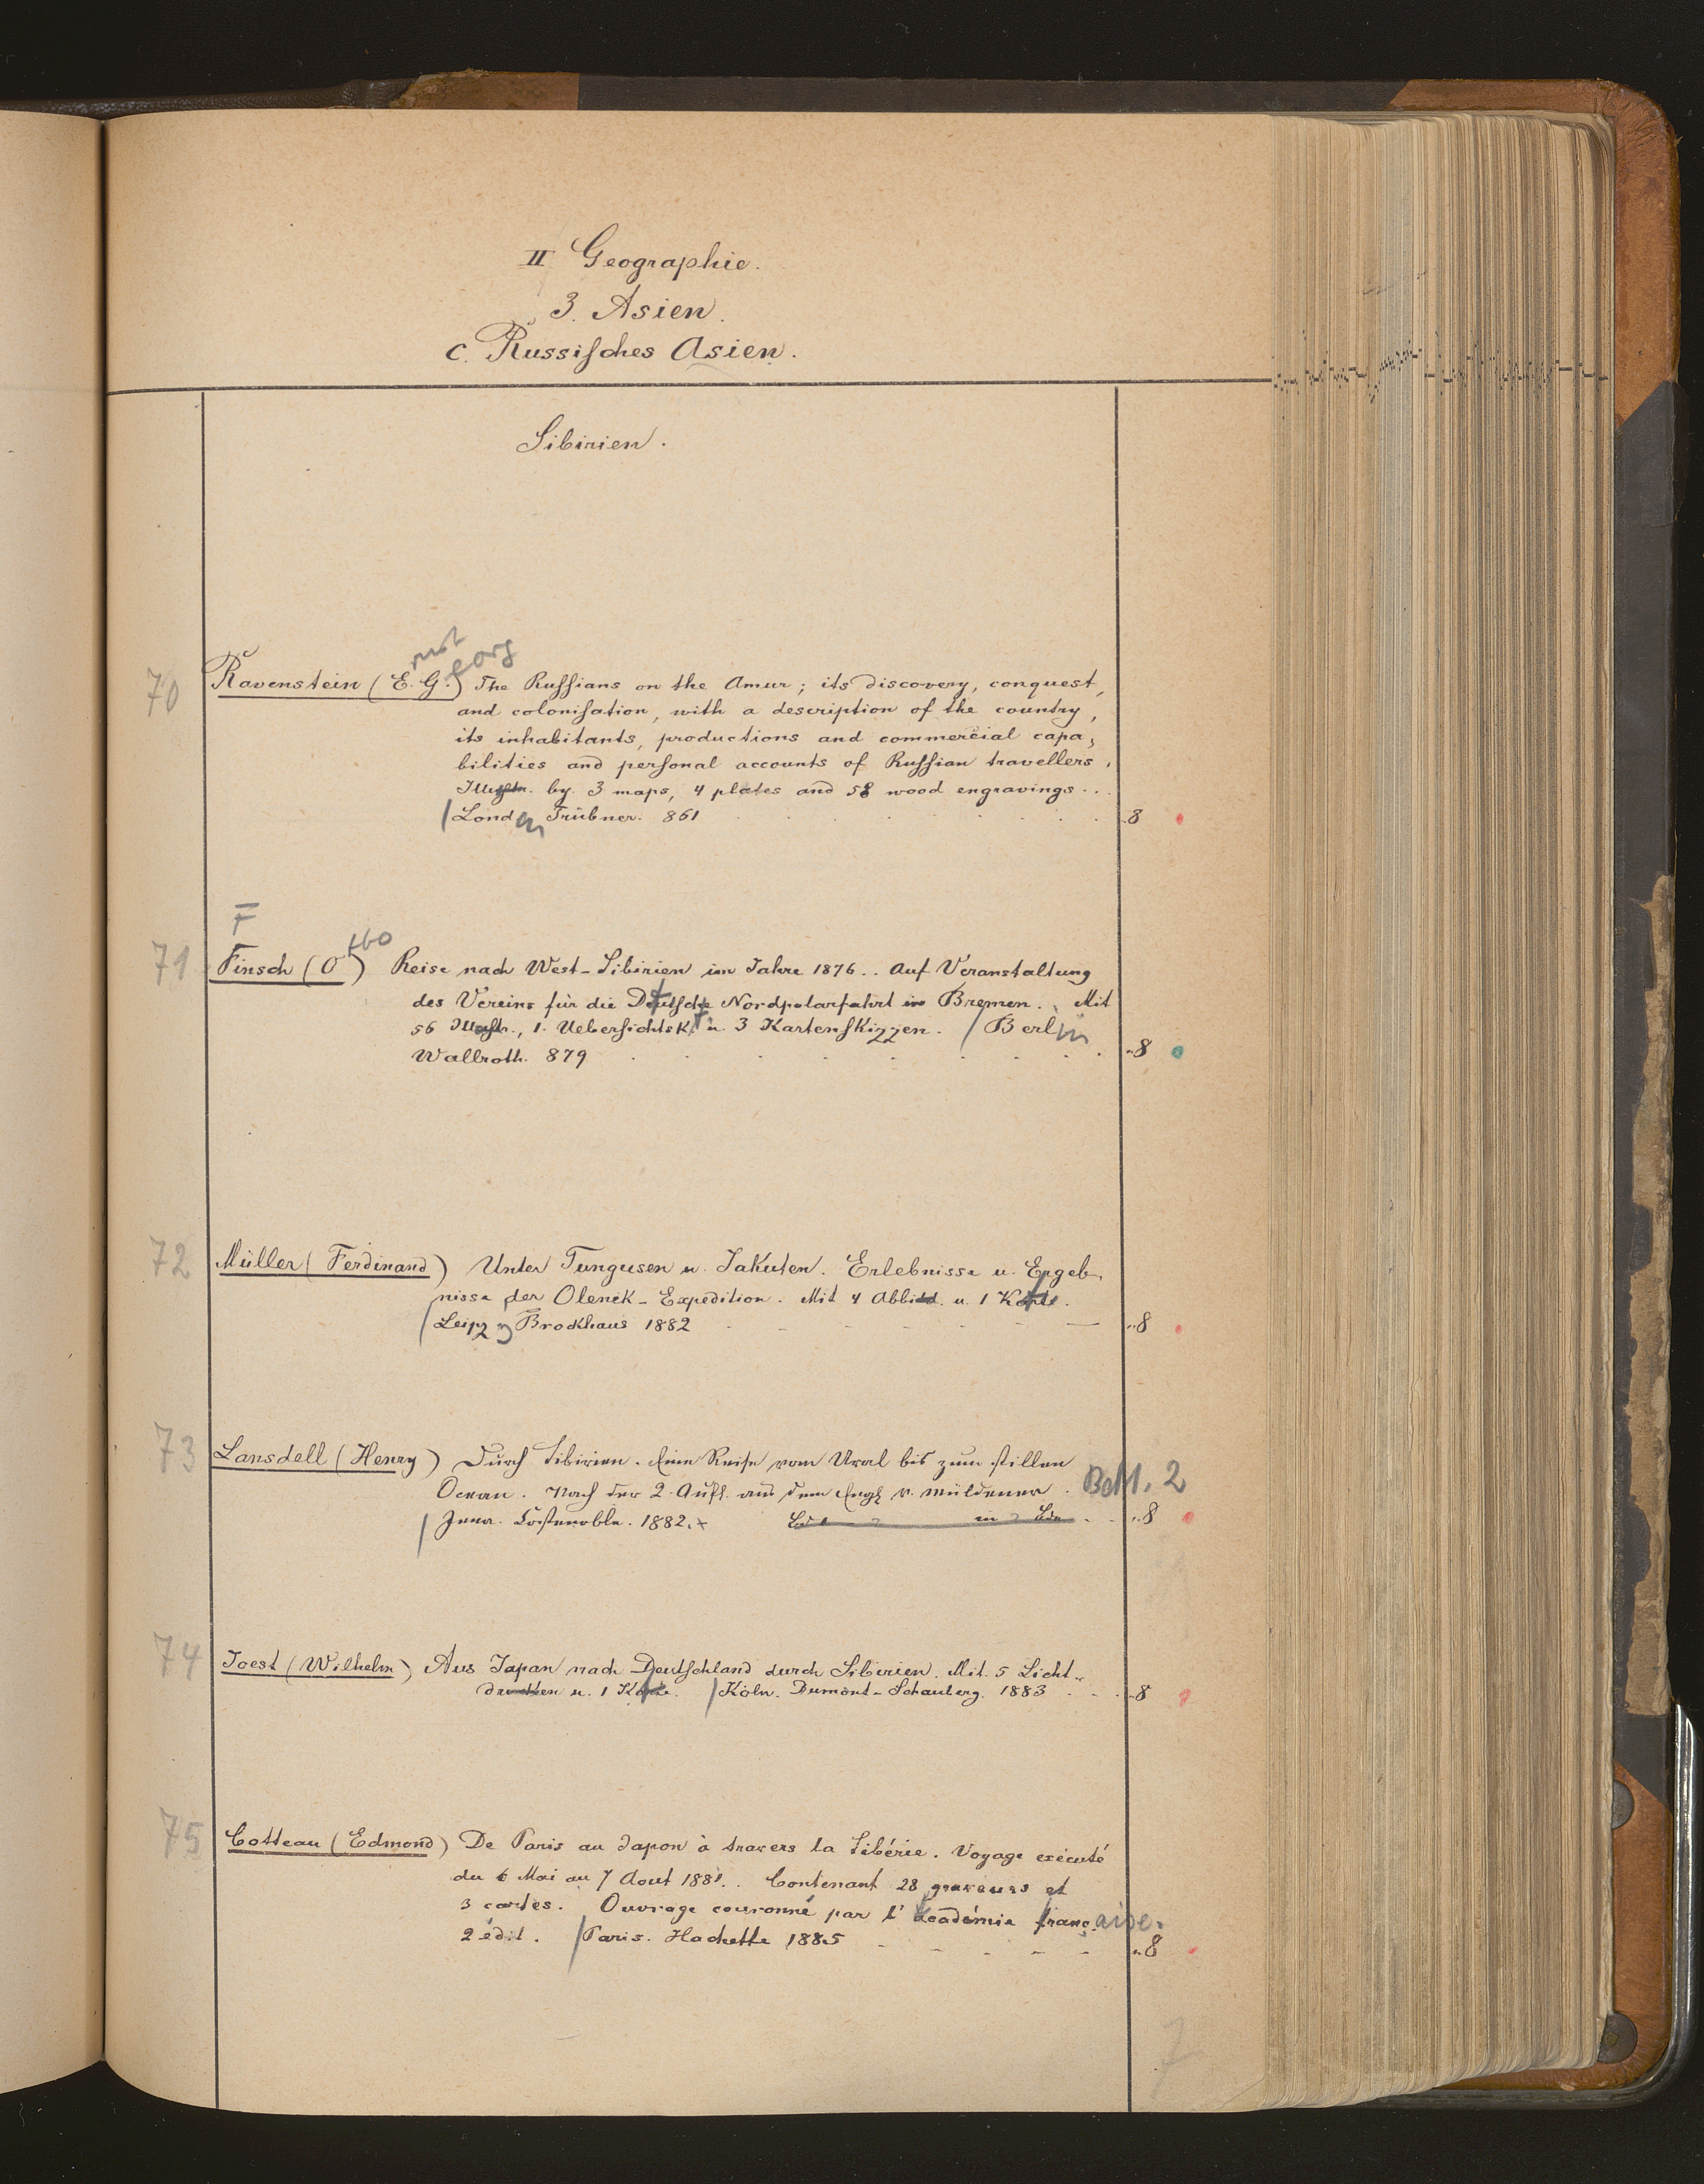 II Geographie.
3. Asien.
c. Russisches Asien.
Sibirien.
rnst eorg
70 Ravenstein (E. G.) The Russians on the Amur; its discovery, conquest,
and colonisation, with a description of the country,
its inhabitants, productions and commercial capa-
bilities and personal accounts of Russian travellers.
Illustr. by 3 maps, 4 plates and 58 wood engravings...
/ London Trübner. 861 8
F
tto
71 Finsch (O ) Reise nach West-Sibirien im Jahre 1876.. Auf Veranstaltung
des Vereins für die Deutsche Nordpolarfahrt in Bremen. Mit
56 Illustr., 1. Uebersichtsk. u. 3 Kartenskizzen. / Berlin
Wallroth. 879 8
72 Müller (Ferdinand) Unter Tungusen u. Jakuten. Erlebnisse u. Ergeb-
nisse der Olenek-Expedition. Mit 4 Abbild. u. 1 Karte.
/ Leipzig Brockhaus 1882 8
73 Lansdell (Henry) Durch Sibirien. Eine Reise vom Ural bis zum stillen
Ocean. Nach der 2. Aufl. aus dem Engl. v. Müldener. Bd 1. 2
/ Jena. Costenoble. 1882. 8
74 Joest (Wilhelm) Aus Japan nach Deutschland durch Sibirien. Mit 5 Licht-
drucken u. 1 Karte. / Köln. Dumont-Schauberg. 1883 8
75 Cotteau (Edmond) De Paris au Japon à travers la Sibérie. Voyage exécuté
du 6 Mai au 7 Aout 1881.. Contenant 28 graveurs et
3 cartes. Ouvrage couronné par l'Académie française.
2 édit. / Paris. Hachette 1885 8
7